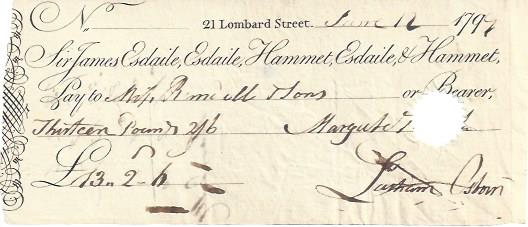 N 21 Lombard Street. June 12 1797
Sir James Esdaile, Esdaile, Hammet, Esdaile, & Hammet,
Pay to & Sons or Bearer,
Thirteen Pounds 2/6
£13-2-6